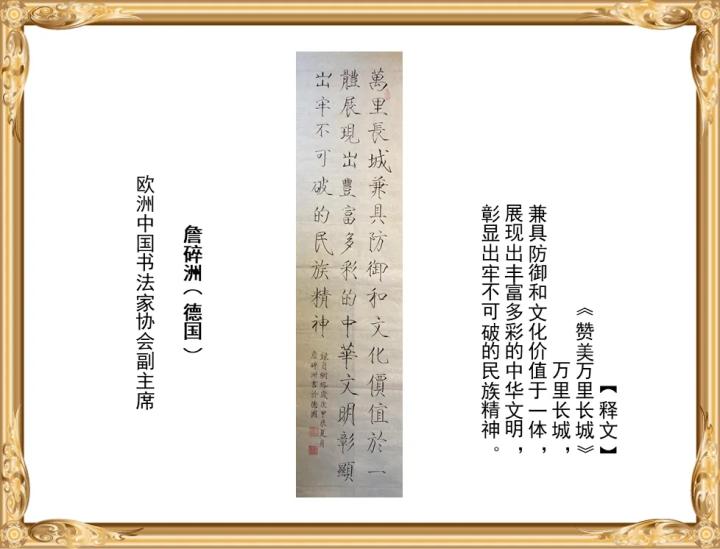 【释文】
《赞美万里长城》
万里长城，
兼具防御和文化价值于一体，
展现出丰富多彩的中华文明，
彰显出牢不可破的民族精神。
萬里長城兼具防御和文化價值於一
體展現出豐富多彩的中華文明彰顯
出牢不可破的民族精神
錄自網絡歲次甲辰夏月
詹碎洲書於德國
詹碎洲（德国）
欧洲中国书法家协会副主席